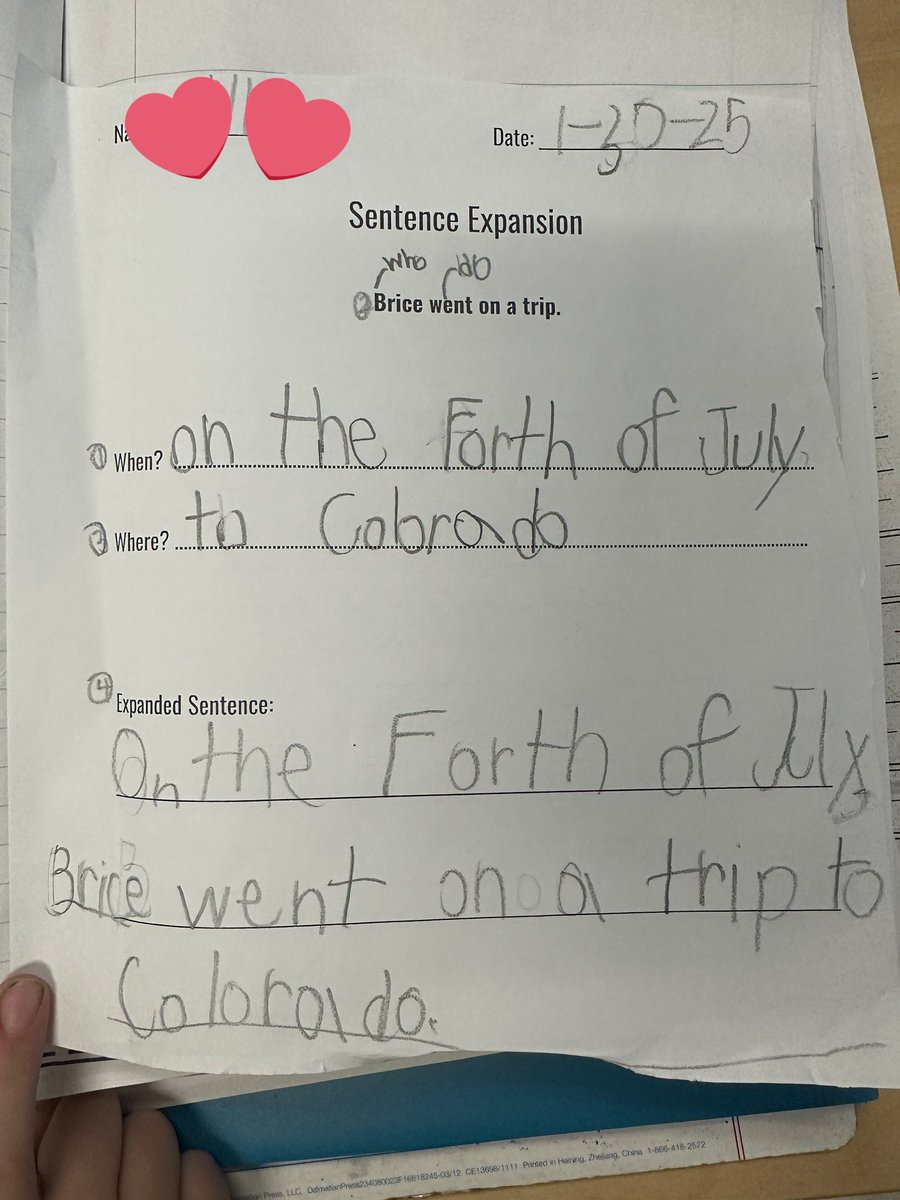 Na
Date: 1-30-25
Sentence Expansion
who do
Brice went on a trip.
① When? on the Forth of July.
② Where? to Colorado
④ Expanded Sentence:
On the Forth of Jlly,
Brice went on a trip to
Colorado.
Press, LLC. DalmatianPress234080023F16818245-03/12 CE13698/1111 Printed in Haining, Zhejiang, China 1-866-418-2572